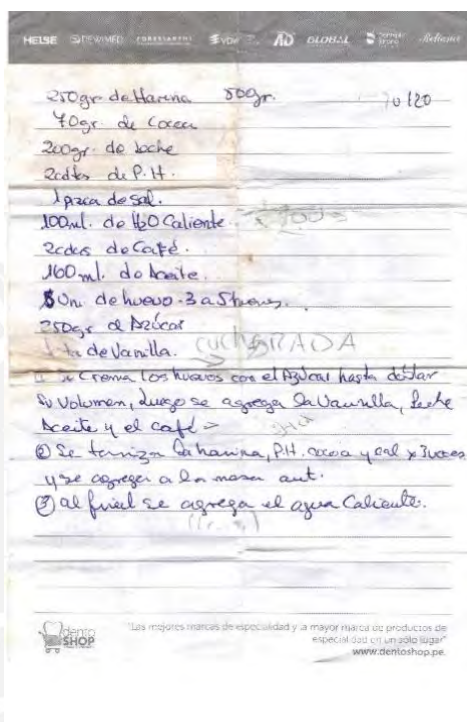 HELSE DEWIMED VDW AD GLOBAL
250gr de Harina 500gr.
70gr. de Cocoa
200gr. de Leche
2cdtas de P.H.
1 pizca de sal.
100ml. de H2O Caliente.
2cdas de Café.
160 ml. de Aceite.
Uni de huevo. 3 a 5
250gr de Azúcar
de Vainilla. cuchARADA
Se Crema los huevos con el Azúcar hasta doblar
Su Volumen, Luego se agrega la Vainilla, Leche
Aceite y el café
② Se tamiza la harina, P.H. cocoa y sal x 3 veces
y se agrega a la masa ant.
③ al final se agrega el agua Caliente.
dento SHOP
"Las mejores marcas de especialidad y la mayor marca de productos de
especialidad en un sólo lugar"
www.dentoshop.pe